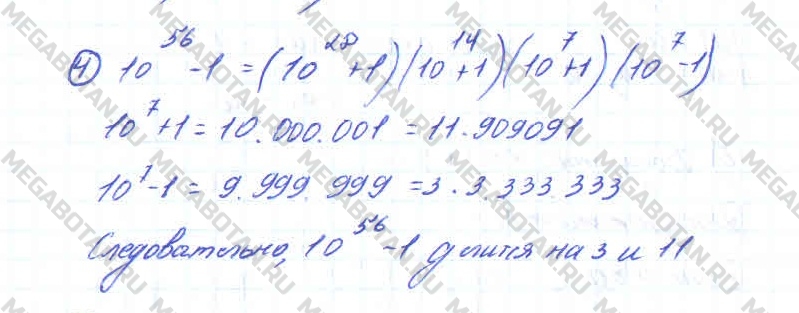 ④ 10⁵⁶ - 1 = (10²⁸ + 1)(10¹⁴ + 1)(10⁷ + 1)(10⁷ - 1)
10⁷ + 1 = 10.000.001 = 11 · 909091
10⁷ - 1 = 9.999 999 = 3 · 3 333 333
Следовательно, 10⁵⁶ - 1 делится на 3 и 11
MEGABOTAN.RU